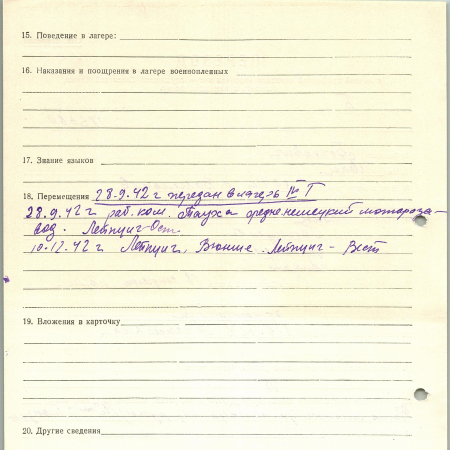 15. Поведение в лагере:
16. Наказания и поощрения в лагере военнопленных
17. Знание языков
18. Перемещения 28.9.42 г передан в лагерь IV Г
28.9.42 г раб. ком. Тауха средненемецкий мотороза-
вод. Лейпциг-Ост.
10.12.42 г Лейпциг, Лейпциг - Вест
19. Вложения в карточку
20. Другие сведения